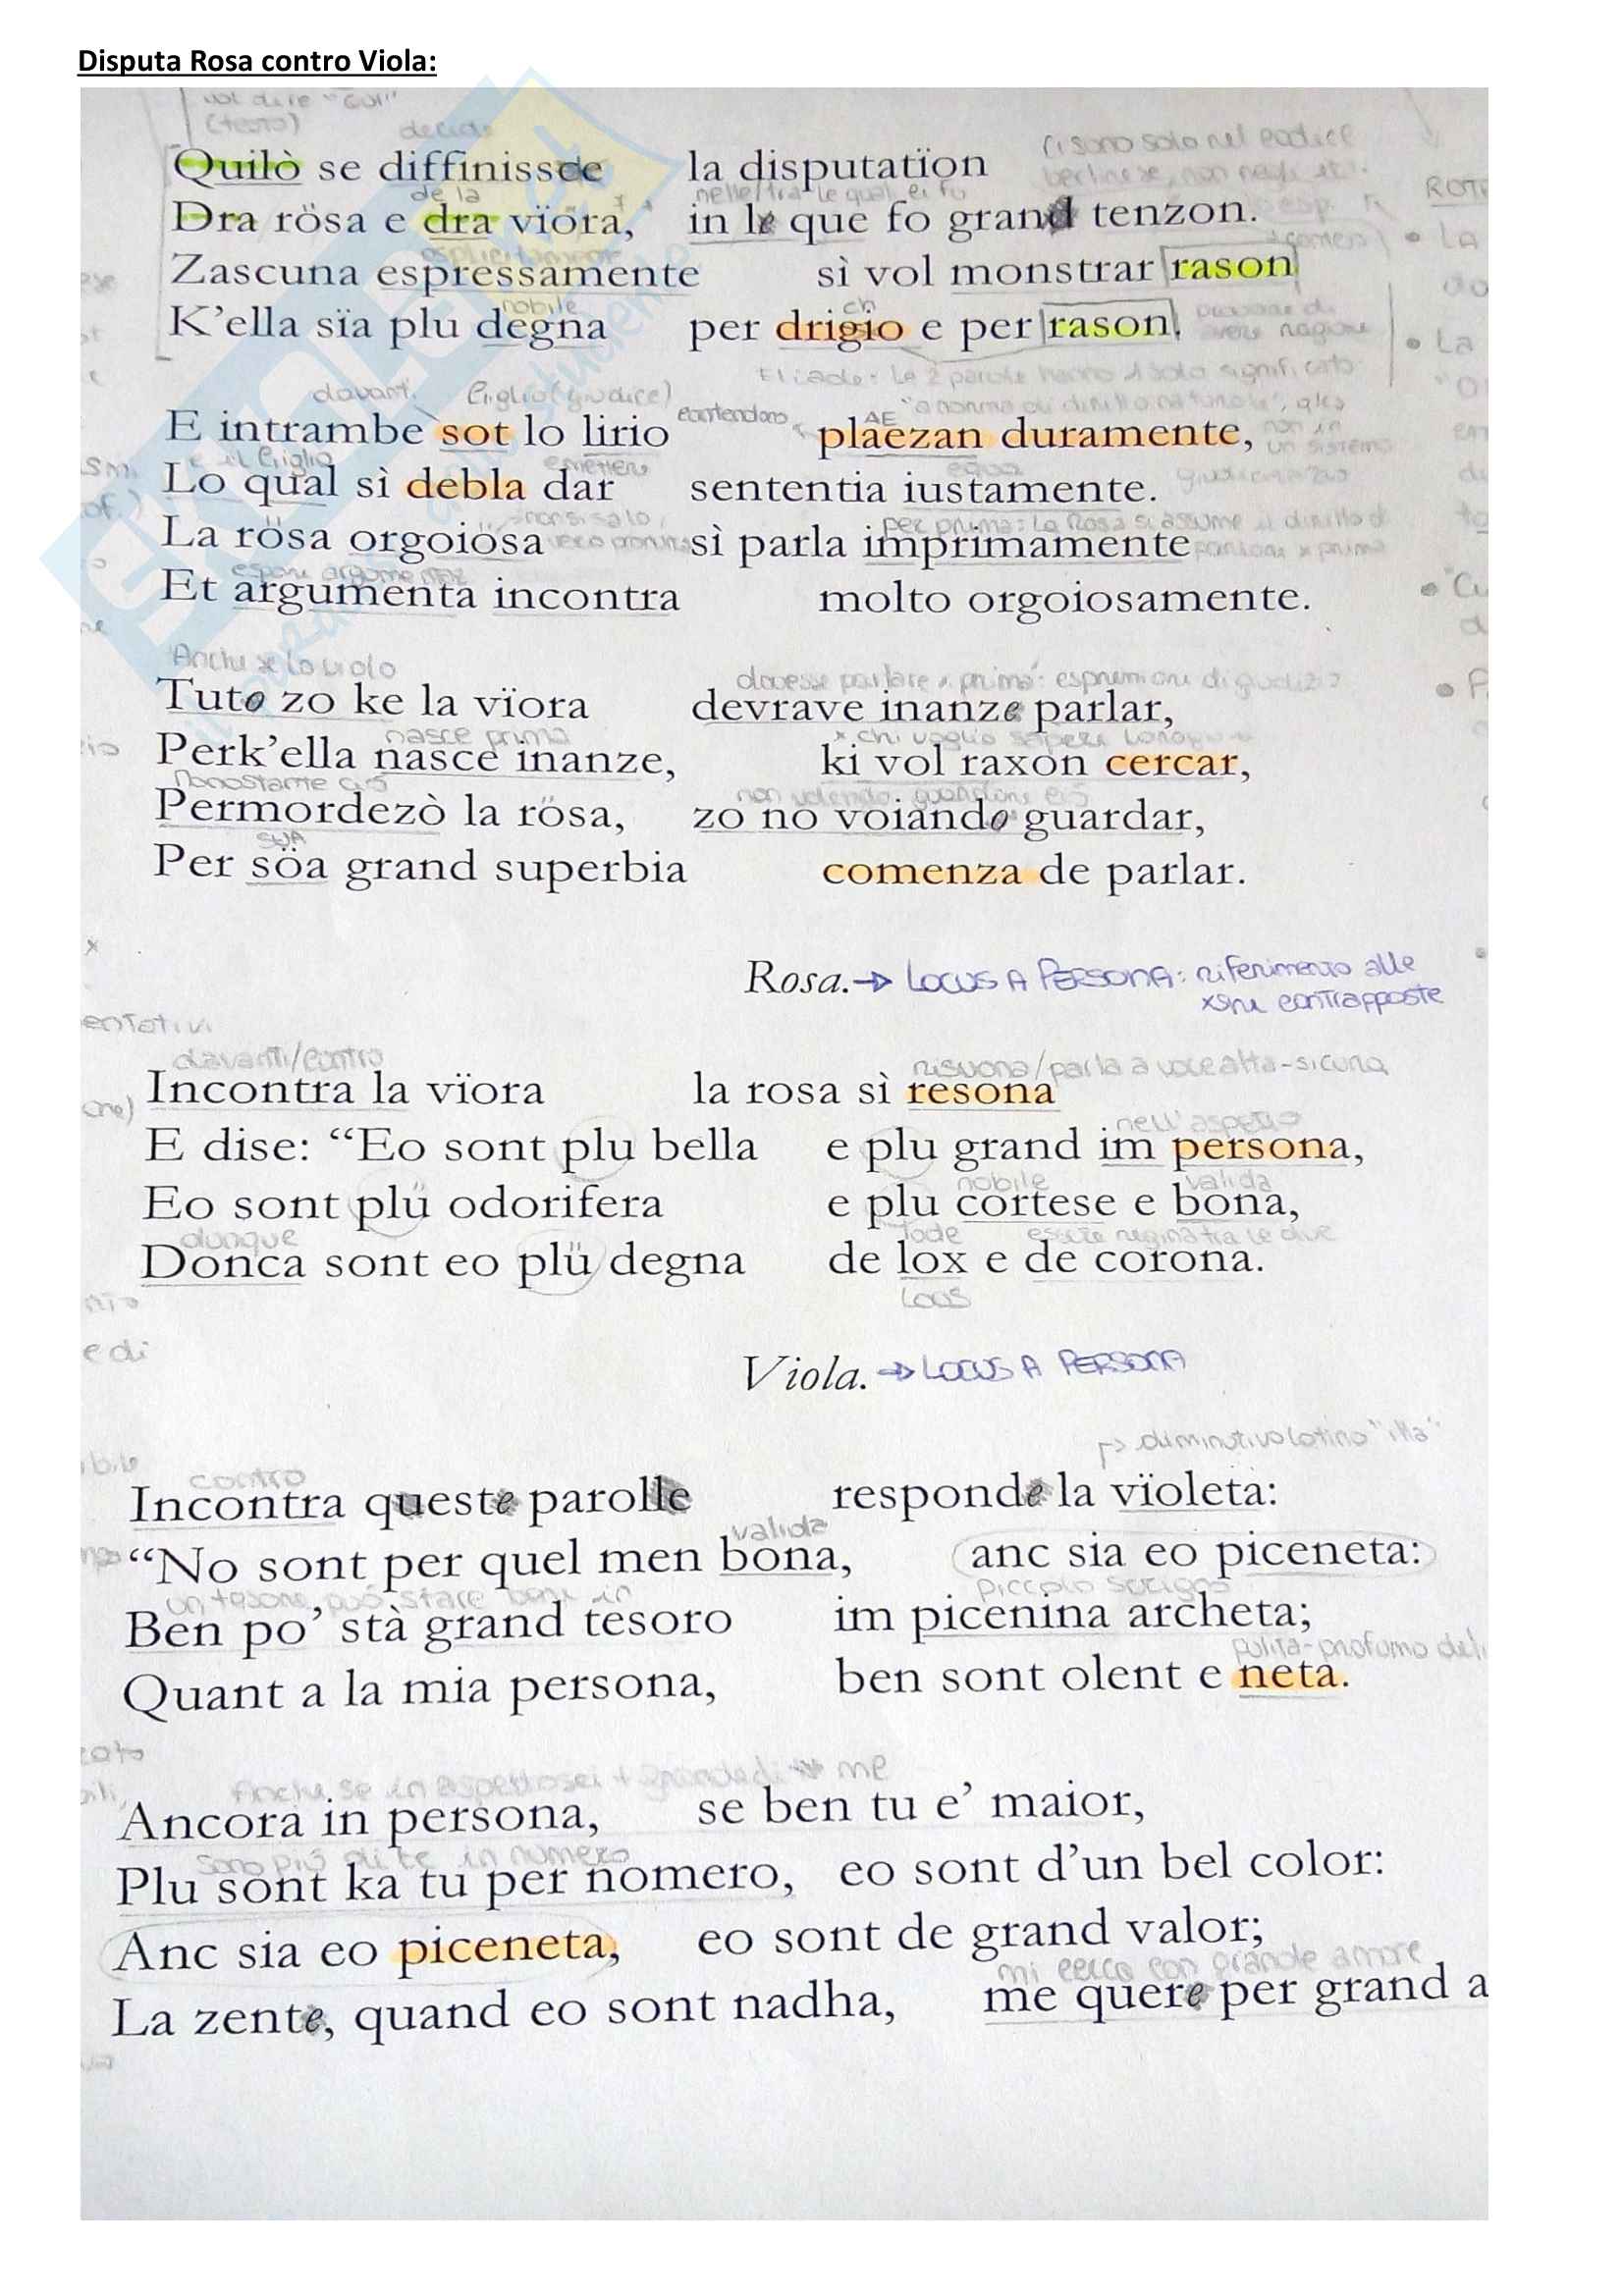 Disputa Rosa contro Viola:
(testo) decide
Quilò se diffinissce la disputatïon
ci sono solo nel codice
de la nelle/tra le qual ei fu
Dra rösa e dra vïora, in le que fo grand tenzon.
Zascuna espressamente sì vol monstrar rason
nobile ch
K'ella sïa plu degna per drigio e per rason.
avere ragione
• La
Eliade: Le 2 parole hanno 1 solo significato
davanti Giglio (giudice) contendono AE "a norma di diritto naturale",
E intrambe sot lo lirio plaezan duramente,
non in un sistema giudiziario
e il Giglio emettere equa
Lo qual sì debla dar sententia iustamente.
non si sa la per prima: La Rosa si assume il diritto d
La rösa orgoiösa sì parla imprimamente
parlare x prima
Et argumenta incontra molto orgoiosamente.
Anche se la viola dovesse parlare x prima: espressioni di giudizio
Tuto zo ke la vïora devrave inanze parlar,
nasce prima x chi voglia sapere
Perk'ella nasce inanze, ki vol raxon cercar,
nonostante ciò non volendo guardare ciò
Permordezò la rösa, zo no voiando guardar,
sua
Per söa grand superbia comenza de parlar.
Rosa. → LOCUS A PERSONA: riferimento alle
xsone contrapposte
davanti/contro risuona/parla a voce alta-sicura
Incontra la vïora la rosa sì resona
nell'aspetto
E dise: “Eo sont plu bella e plu grand im persona,
nobile valida
Eo sont plü odorifera e plu cortese e bona,
dunque lode essere regina tra le due
Donca sont eo plü degna de lox e de corona.
LOUS
e di
Viola. → LOCUS A PERSONA
→ diminutivo latino "illa"
contro
Incontra queste parolle responde la vïoleta:
valida
“No sont per quel men bona, anc sia eo piceneta:
un tesoro può stare bene in piccolo scrigno
Ben po' stà grand tesoro im picenina archeta;
pulita-profumo
Quant a la mia persona, ben sont olent e neta.
Anche se in aspetto sei + grande di me
Ancora in persona, se ben tu e' maior,
sono più di te in numero
Plu sont ka tu per nomero, eo sont d'un bel color:
Anc sia eo piceneta, eo sont de grand valor;
mi cerca con grande amore
La zente, quand eo sont nadha, me quere per grand a